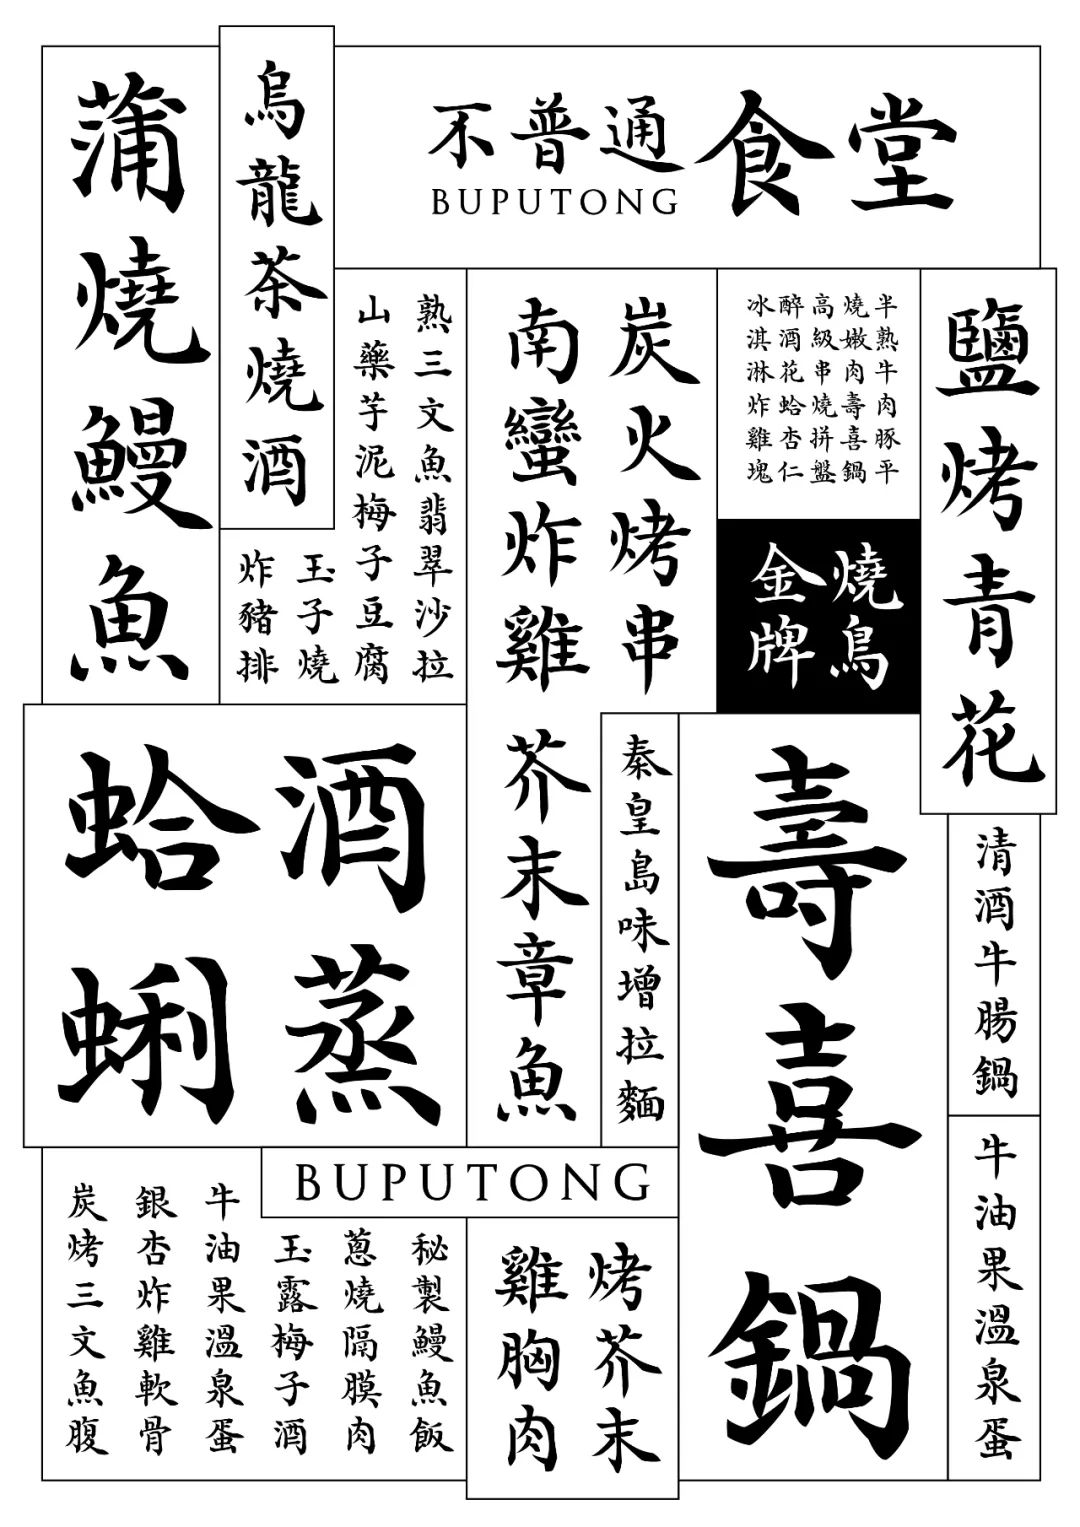 不普通食堂
BUPUTONG
鹽烤青花
半熟牛肉豚平
燒嫩肉壽喜鍋
高級串燒拼盤
醉酒花蛤杏仁
冰淇淋炸雞塊
金牌
燒鳥
炭火烤串
南蠻炸雞
芥末章魚
熟三文魚翡翠沙拉
山藥芋泥梅子豆腐
玉子燒
炸豬排
烏龍茶燒酒
蒲燒鰻魚
清酒牛腸鍋
牛油果溫泉蛋
壽喜鍋
秦皇島味增拉麵
酒蒸
蛤蜊
BUPUTONG
烤芥末
雞胸肉
秘製鰻魚飯
蔥燒隔膜肉
玉露梅子酒
牛油果溫泉蛋
銀杏炸雞軟骨
炭烤三文魚腹